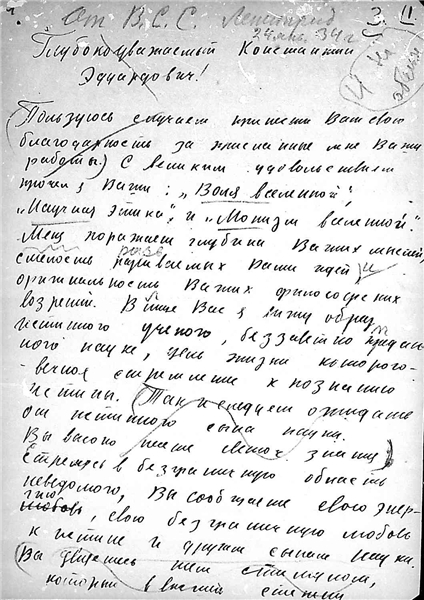 От В.С.С. Ленинград 3. II.
24 янв. 34 г
Глубокоуважаемый Константин
Эдуардович!
Пользуюсь случаем принести Вам свою
благодарность за присланные мне Вами
работы. С великим удовольствием
прочел я Ваши: „Воля вселенной",
„Научная этика", и „Монизм вселенной".
Меня поражает глубина Ваших мыслей,
смелость развиваемых Вами идей и
оригинальность Ваших философских
воззрений. В лице Вас я вижу образ
истинного ученого, беззаветно предан-
ного науке, цель жизни которого-
- вечное стремление к познанию
истины. Так и следует ожидать
от истинного сына науки.
Вы высоко несете светоч знания
Стремясь в безграничную область
неведомого, Вы сообщаете свою энер-
гию, свою безграничную любовь
к истине и другим сынам науки.
Вы движетесь тем стимулом,
который в высшей степени